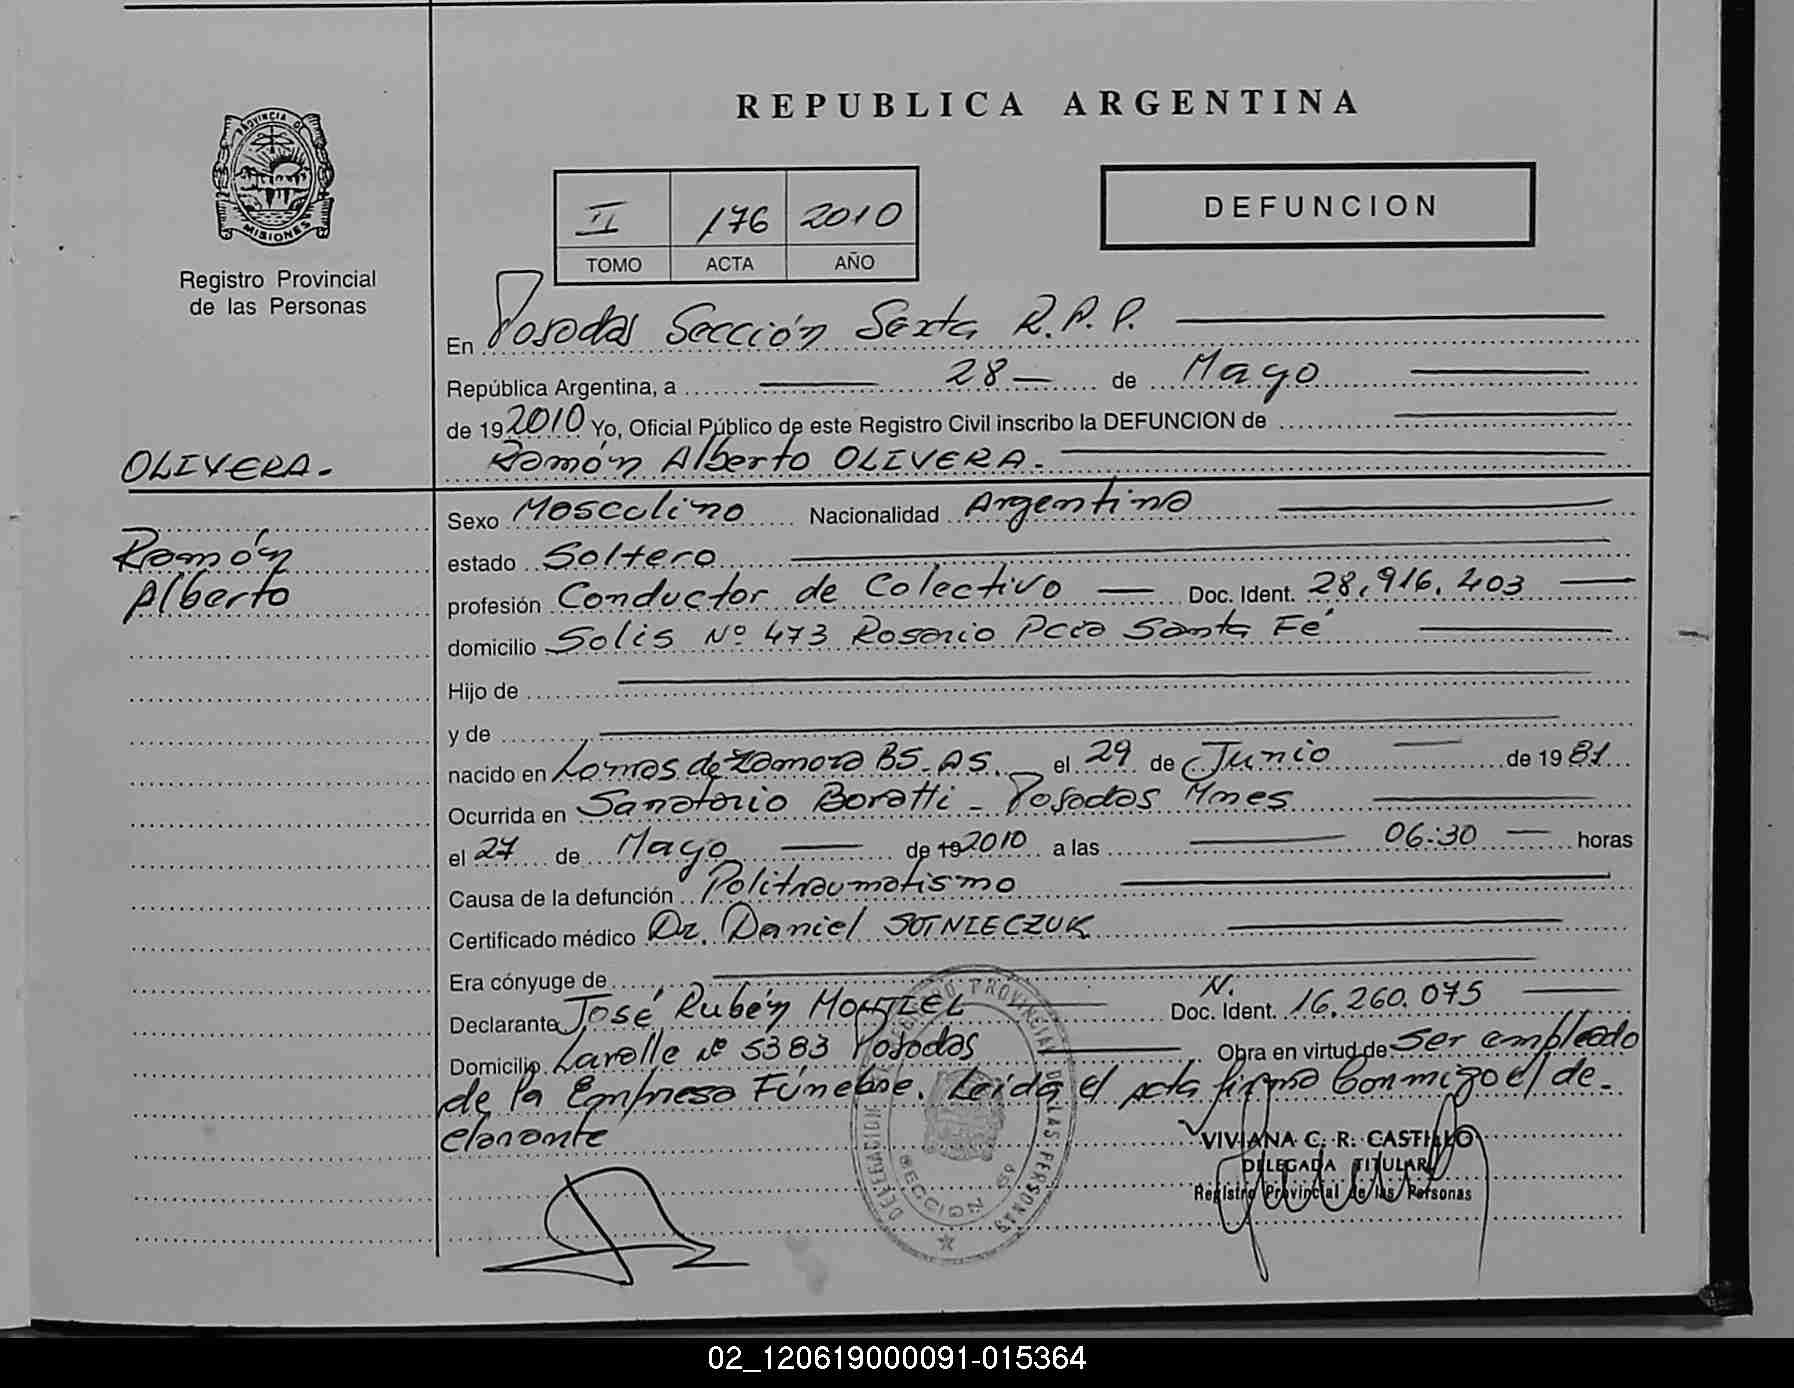 REPUBLICA ARGENTINA
PROVINCIA DE
MISIONES
Registro Provincial
de las Personas
II 176 2010
TOMO ACTA AÑO
DEFUNCION
En Posadas Sección Sexta R.P.P.
República Argentina, a 28 de Mayo
de 19 2010 Yo, Oficial Público de este Registro Civil inscribo la DEFUNCION de
OLIVERA.
Ramón Alberto OLIVERA.
Ramón
Alberto
Sexo Masculino Nacionalidad Argentina
estado Soltero
profesión Conductor de Colectivo Doc. Ident. 28.916.403
domicilio Solis Nº 473 Rosario Pcia Santa Fé
Hijo de
y de
nacido en Lomas de Zamora BS. AS. el 29 de Junio de 1981
Ocurrida en Sanatorio Boratti - Posadas Mnes
el 27 de Mayo de 19 2010 a las 06:30 horas
Causa de la defunción Politraumatismo
Certificado médico Dr. Daniel SOTNIECZUK
Era cónyuge de
Declarante José Rubén MONTIEL N. Doc. Ident. 16.260.075
Domicilio Lavalle Nº 5383 Posadas Obra en virtud de Ser empleado
de la Empresa Fúnebre. Leida el acta firma conmigo el de-
clarante
VIVIANA C. R. CASTILLO
DELEGADA TITULAR
Registro Provincial de las Personas
REGISTRO PROVINCIAL DE LAS PERSONAS
DELEGACION
SECCION 6ª
02_120619000091-015364